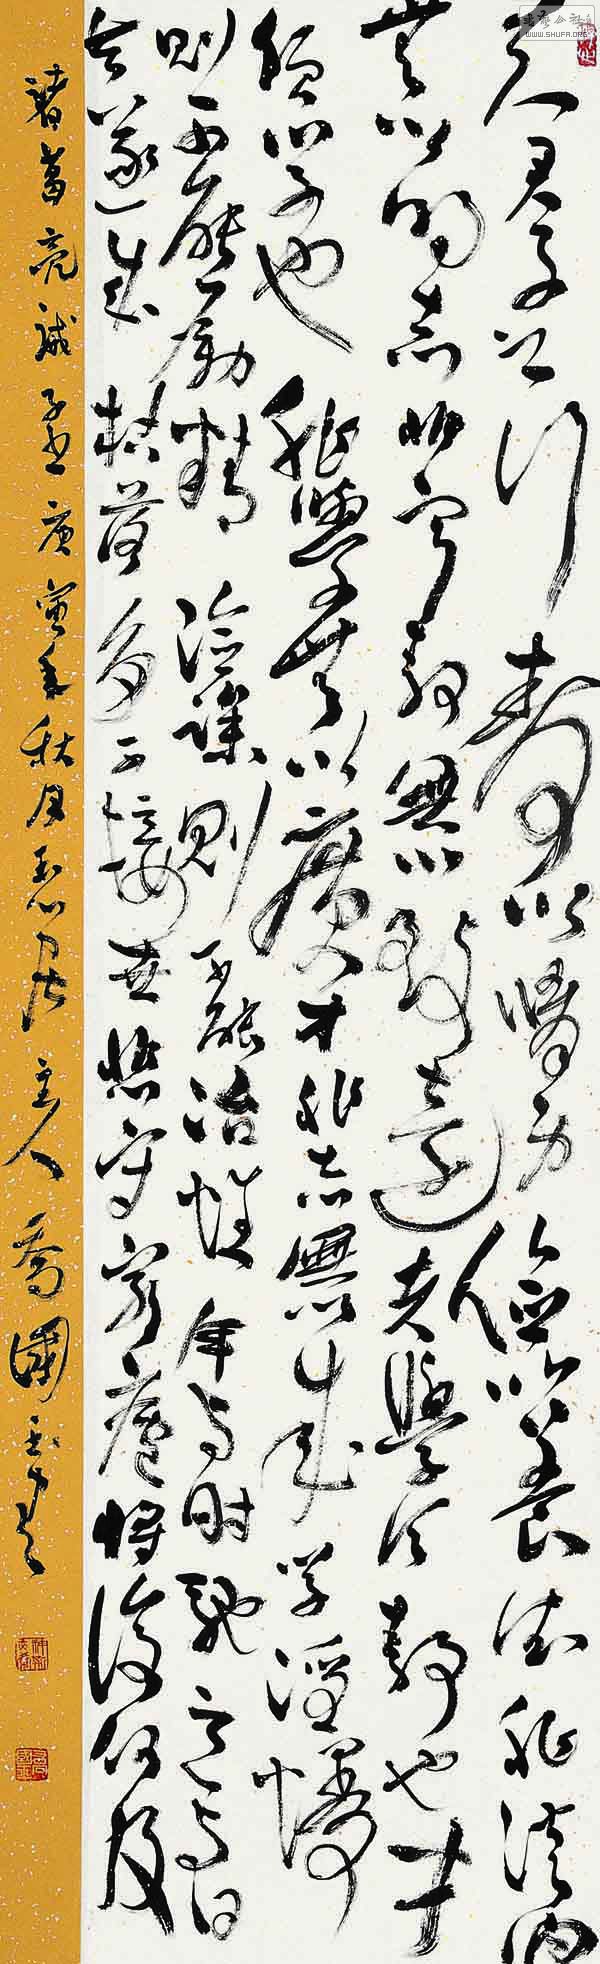 书法公社
WWW.SHUFA.ORG
夫君子之行靜以脩身儉以養德非淡泊
無以明志非寧靜無以致遠夫學須靜也才
須學也非學無以廣才非志無以成學淫慢
則不能勵精險躁則不能治性年與時馳意與日
去遂成枯落多不接世悲守窮廬將復何及
諸葛亮誡子書庚寅年秋月居主人喬國玉書